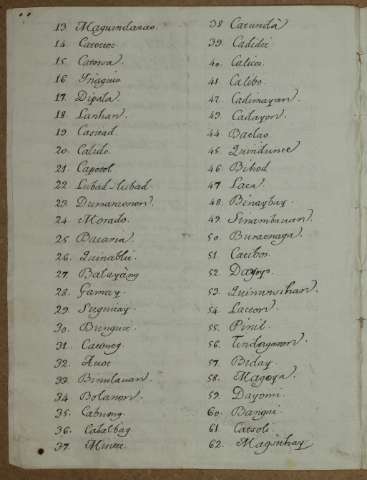 13. Maguindanao
14. Caroroc
15. Carova
16 Ynaguio
17. Dipala
18. Lanhan.
19. Casead
20. Calido
21. Capotol
22 Lubad-Lubad
23. Dumanonon.
24. Morado.
25. Bacaria
26. Quinablu
27. Balayang
28. Gamay
29. Suguicay
30. Bungui
31. Caconeg
32.
33 Binulauan.
34 Bolanon.
35. Cabuong
36. Cabatbag
37. Minei
38. Carunda
39. Cadidit
40. Calicos
41. Calibo
42. Cadimayan.
43. Cadayon.
44 Baclao
45 Quindunec
46 Bihod
47 Laca
48. Binaybay
49. Sinambauan.
50. Buraonaga
51. Caribos
52. Dayoyo.
53. Quinunsihan.
54 Lacoon.
55. Pinil
56. Tindoganon.
57. Biday
58. Magoya
59. Dayomi
60. Bangui
61 Catsoli
62. Maguhay